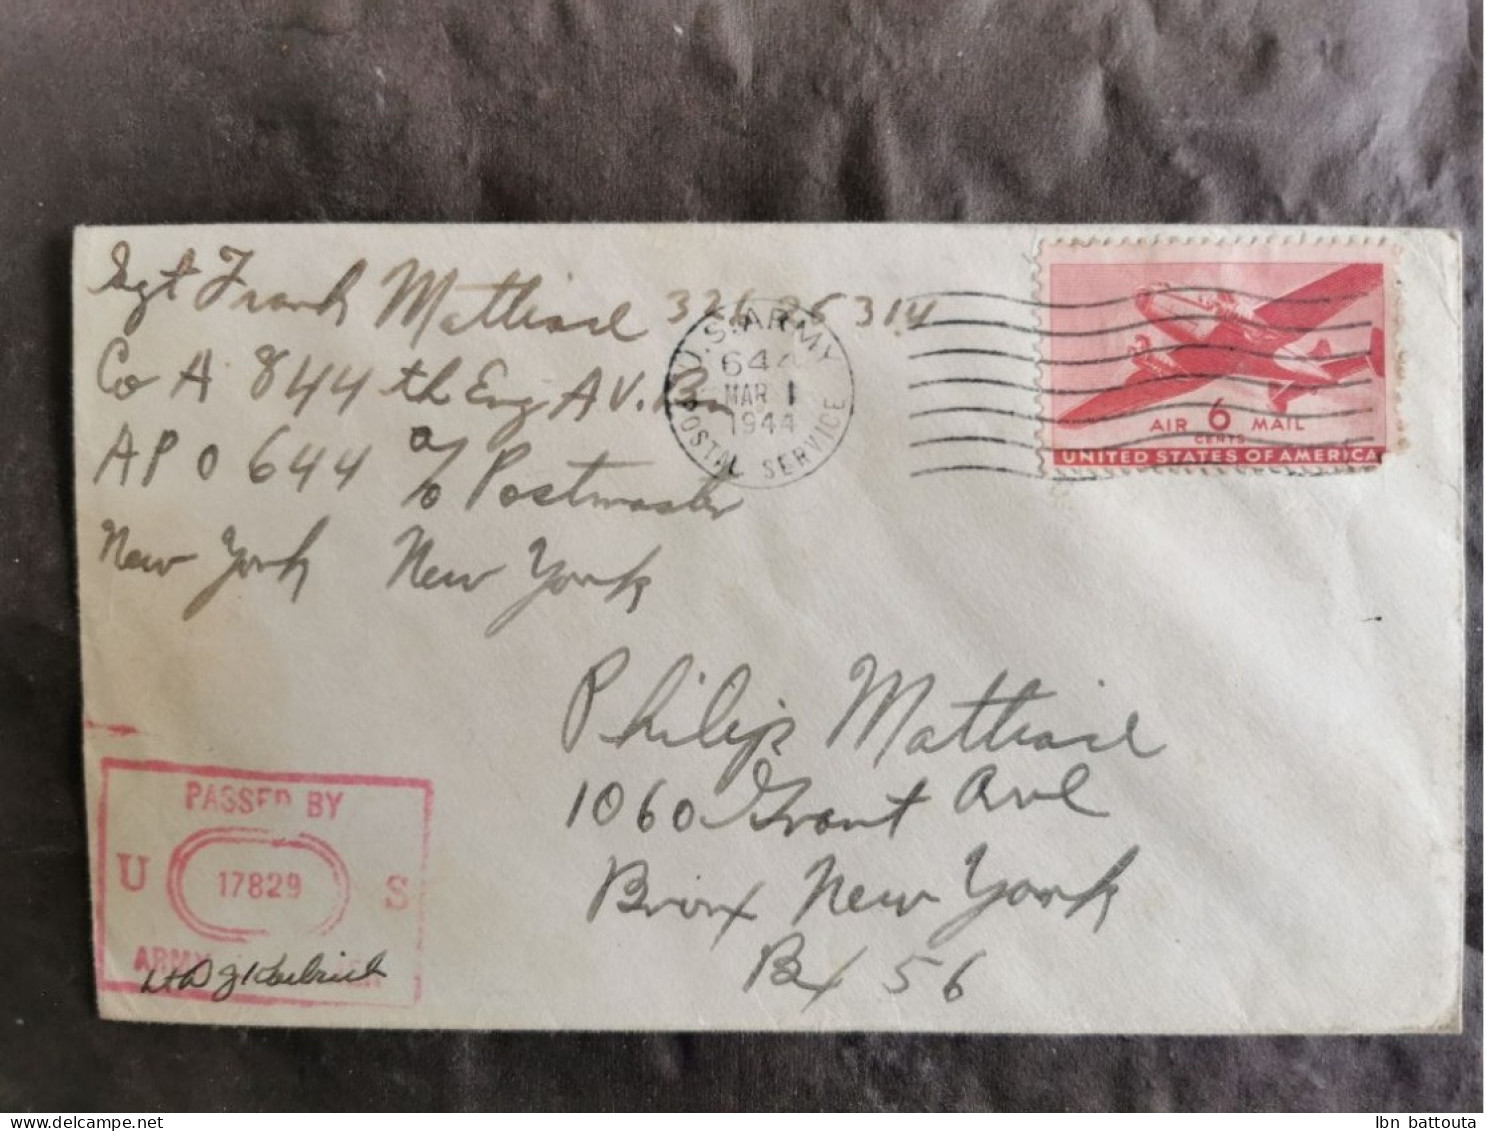 Sgt Frank Mattiace 32626314
Co A 844th Eng AV. Bn
APO 644 c/o Postmaster
New York New York
U.S. ARMY
644
MAR 1
1944
POSTAL SERVICE
AIR 6 MAIL
CENTS
UNITED STATES OF AMERICA
Philip Mattiace
1060 Grant Ave
Bronx New York
Bx 56
PASSED BY
U 17829 S
ARMY
Ibn battouta